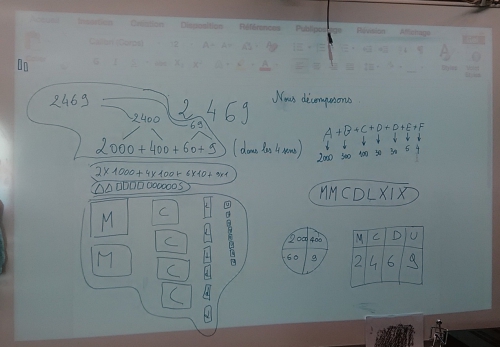 Accueil Insertion Création Disposition Références Publipostage Révision Affichage
2469
2 469
Nous décomposons
2400
69
2000 + 400 + 60 + 9 (dans les 4 sens)
A + B + C + D + D + E + F
2000 300 100 30 30 5 4
2 x 1000 + 4 x 100 + 6 x 10 + 9 x 1
MMCDLXIX
M C
M C
C
C
2000 400
60 9
M C D U
2 4 6 9